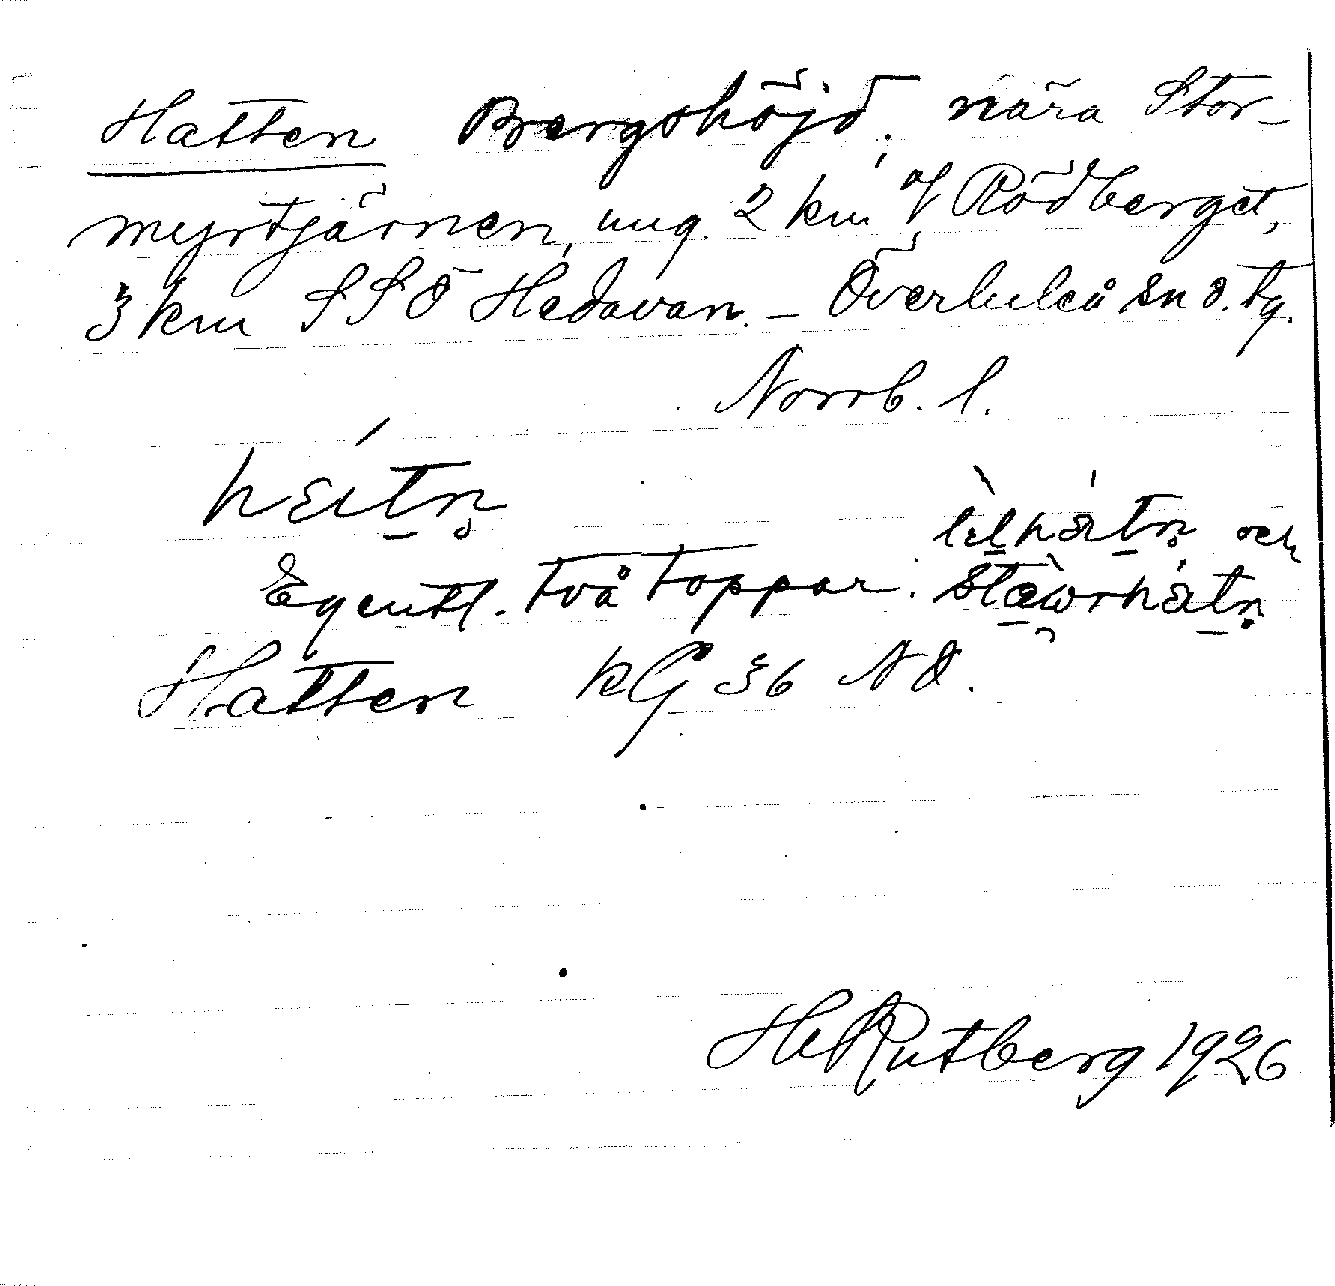 Hatten Bergshöjd, nära Stor-
myrtjärnen, ung. 2 km of Rödberget,
3 km SSÖ Hedavan. – Överluleå sn o. tg.
Norrb. l.
Egentl. två toppar. och
Hatten kG 36 NO.
HeRutberg 1926